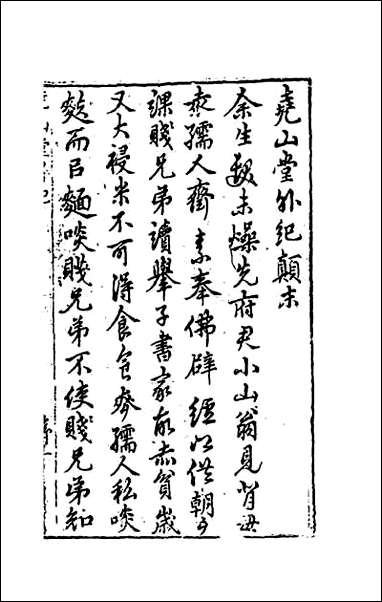 堯山堂外紀顛末
余生髮未燥先府君小山翁見背母
袁孺人齋素奉佛辟纑以供朝夕
課賤兄弟讀舉子書家故赤貧歲
又大祲米不可得食食麥孺人私啖
麩而以麵啖賤兄弟不使賤兄弟知